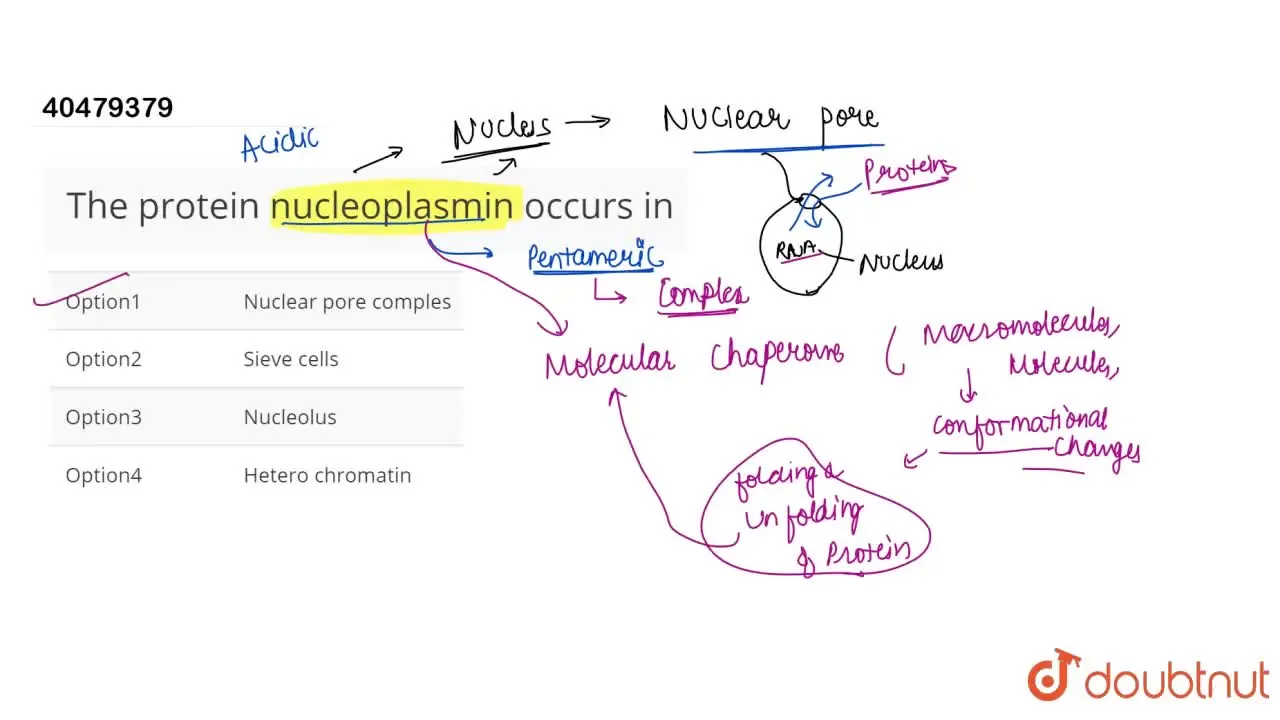 40479379
Acidic
Nucleus
Nuclear pore
Proteins
The protein nucleoplasmin occurs in
RNA
Nucleus
Pentameric
Complex
Option1 Nuclear pore comples
Option2 Sieve cells
Option3 Nucleolus
Option4 Hetero chromatin
Molecular Chaperone
Macromolecules,
Molecules,
Conformational
Changes
folding &
unfolding
of Protein
doubtnut